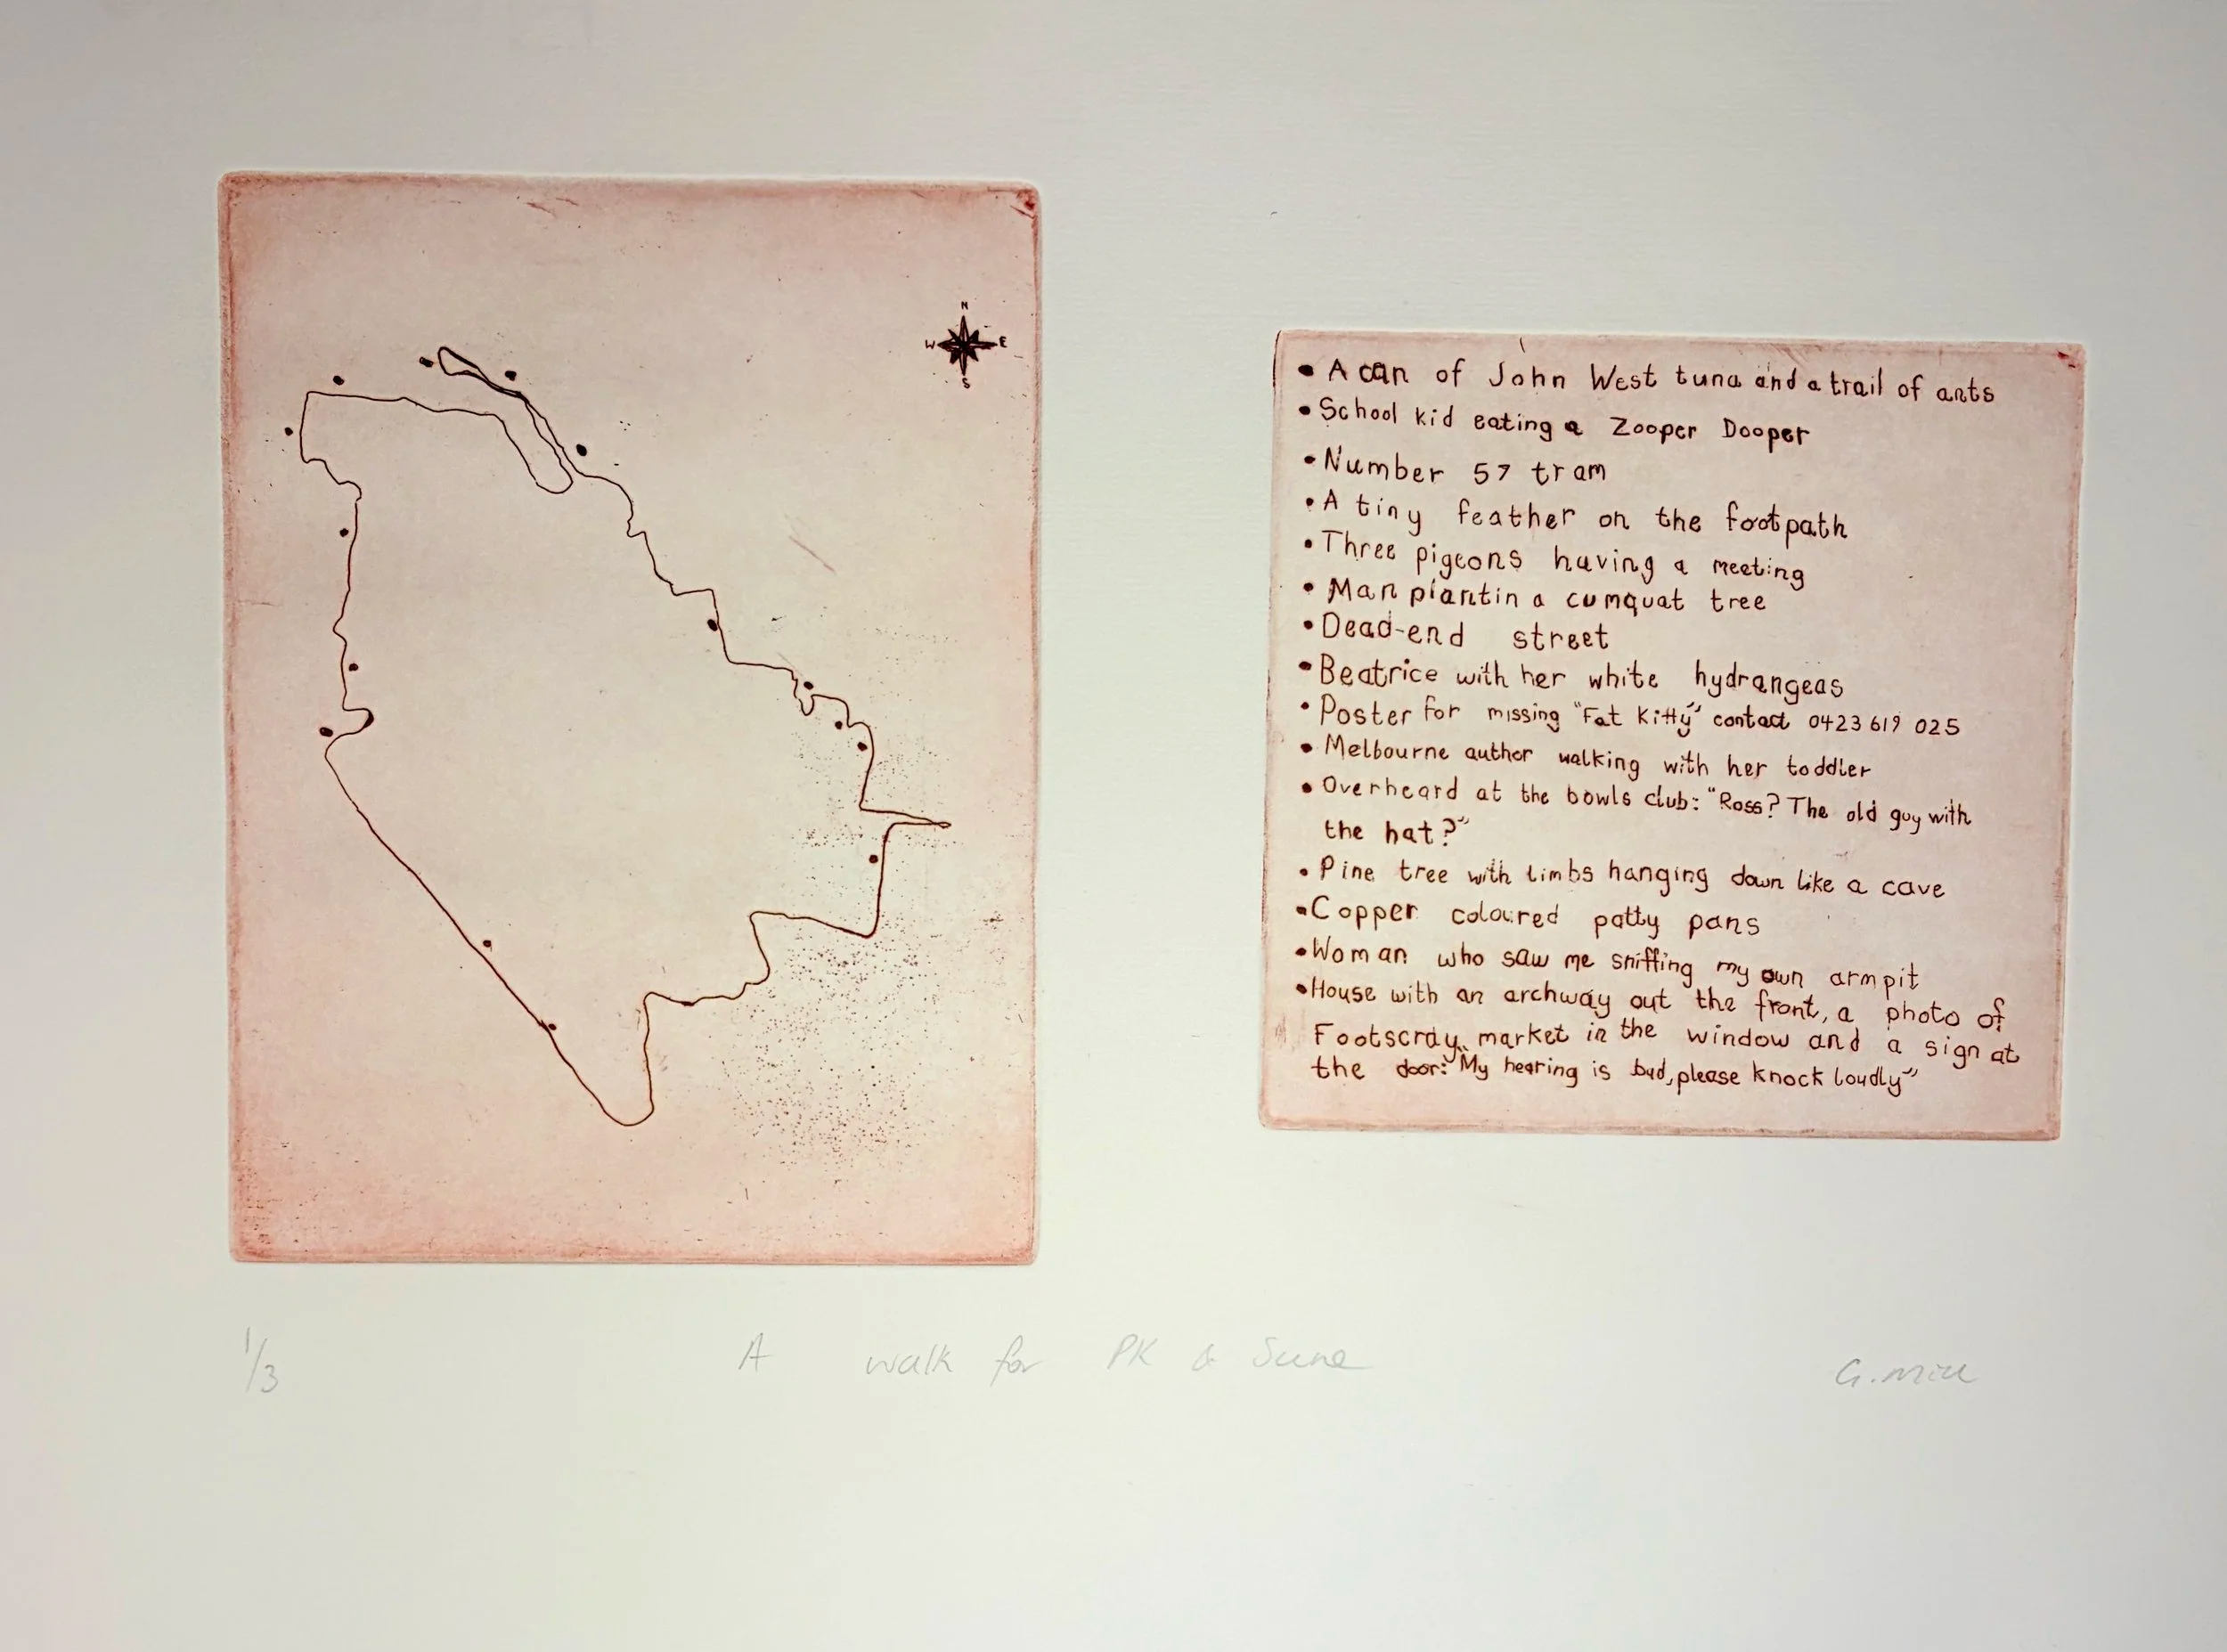 N
W E
S
• A can of John West tuna and a trail of ants
• School kid eating a Zooper Dooper
• Number 57 tram
• A tiny feather on the footpath
• Three pigeons having a meeting
• Man plantin a cumquat tree
• Dead-end street
• Beatrice with her white hydrangeas
• Poster for missing "Fat Kitty" contact 0423 619 025
• Melbourne author walking with her toddler
• Overheard at the bowls club: "Ross? The old guy with
the hat?"
• Pine tree with limbs hanging down like a cave
• Copper coloured patty pans
• Woman who saw me sniffing my own armpit
• House with an archway out the front, a photo of
Footscray market in the window and a sign at
the door: "My hearing is bad, please knock loudly"
1/3 A walk for PK & G.